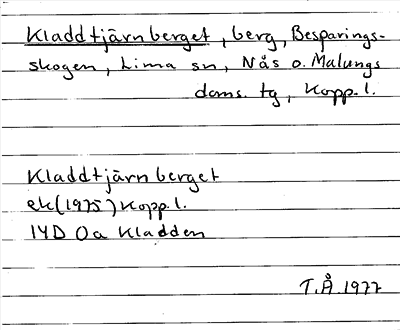 Kladdtjärnberget, berg, Besparings-
skogen, Lima sn, Nås o. Malungs
doms. tg, Kopp. l.
Kladdtjärnberget
ek (1975) Kopp. l.
14D 0a Kladden
T.Å. 1977